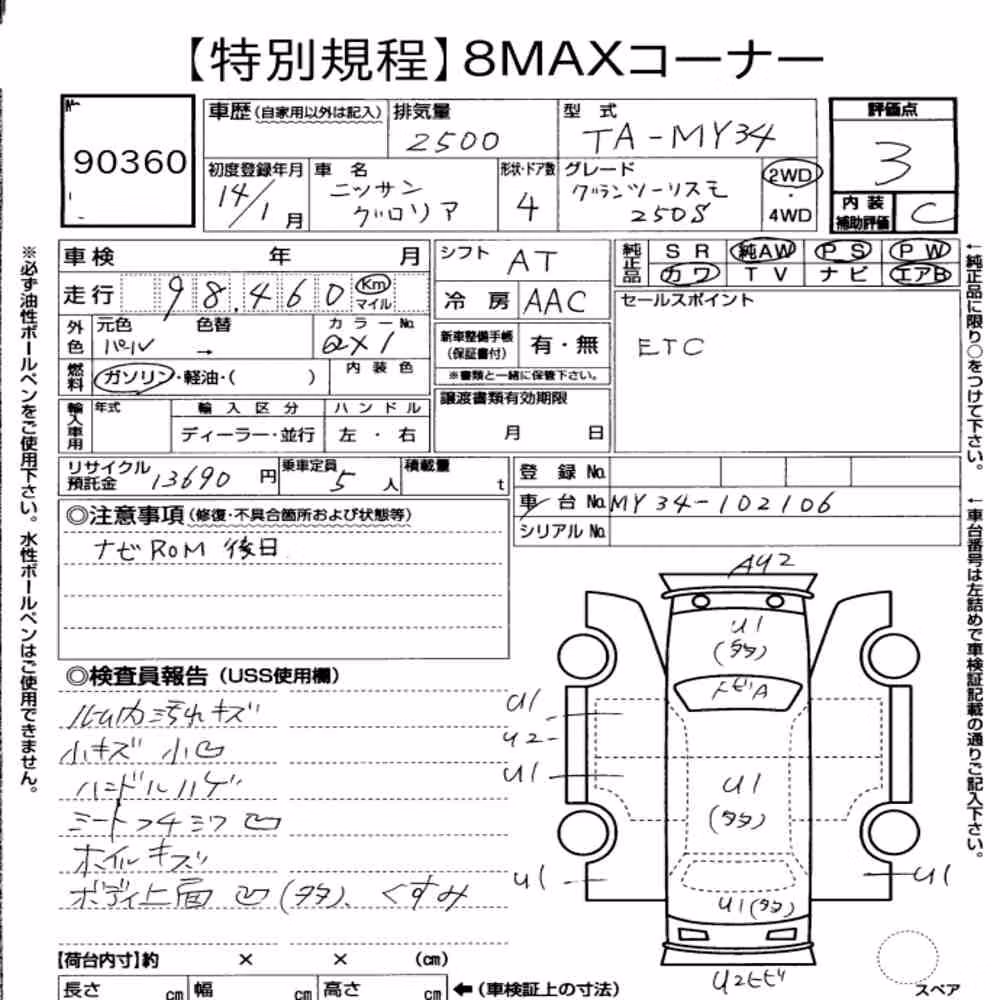 【特別規程】8MAXコーナー
90360
車歴(自家用以外は記入) 排気量 2500 型式 TA-MY34 評価点 3
初度登録年月 14/1月 車名 ニッサン グロリア 形状・ドア数 4 グレード グランツーリスモ 250S 2WD・4WD 内装補助評価 C
車検 年 月 シフト AT 純正品 SR 純AW PS PW
カワ TV ナビ エアB
走行 98,460 Km マイル 冷房 AAC セールスポイント
ETC
外色 元色 パール 色替 → カラーNo. QX1 新車整備手帳(保証書付) 有・無
※書類と一緒に保管下さい。
燃料 ガソリン・軽油・( ) 内装色 譲渡書類有効期限 月 日
輸入車用 年式 輸入区分 ディーラー・並行 ハンドル 左・右
リサイクル預託金 13690円 乗車定員 5人 積載量 t 登録No.
車台No. MY34-102106
シリアルNo.
◎注意事項(修復・不具合箇所および状態等)
ナビROM 後日
◎検査員報告(USS使用欄)
ルーム内汚れキズ
小キズ 小凹
ハンドルハゲ
シートコゲ
ホイルキズ
ボディ上面 凹(多多)、くすみ
【荷台内寸】約 × × (cm)
長さ cm 幅 cm 高さ cm ←(車検証上の寸法)
AY2
U1
(多多)
トビA
U1
U2
U1
U1
(多多)
U1
U1(多多)
U1
スペア
※必ず油性ボールペンをご使用下さい。水性ボールペンはご使用できません。
←純正品に限り○をつけて下さい。
←車台番号は左詰めで車検証記載の通りご記入下さい。